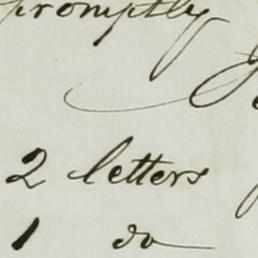 promptly
2 letters
1 do